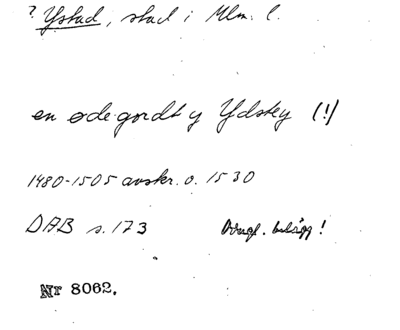 ? Ystad, stad i Mlm. l.
en øde gordt y Ydstey (!)
1480-1505 avskr. o. 1530
DAB s. 173 belägg!
Nr 8062.